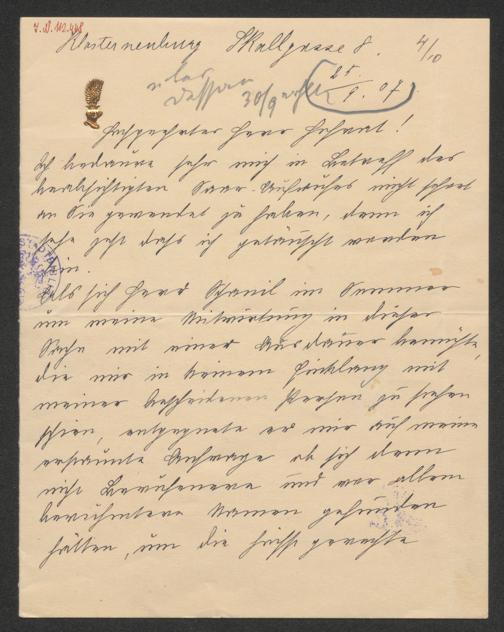 I.N. 112.448
Klosterneuburg Skallgasse 8.
4/10
25.
9. 07.
30/9
Hochgeehrter Herr Hofrat!
Ich bedaure sehr mich in Betreff des
beabsichtigten Saar-Aufrufes nicht sofort
an Sie gewendet zu haben, denn ich
sehe jetzt dass ich getäuscht worden
bin.
Als sich Herr Schanil im Sommer
um meine Mitwirkung in dieser
Sache mit einer Ausdauer bemühte,
die mir in keinem Einklang mit
meiner bescheidenen Person zu stehen
schien, entgegnete er mir auf meine
erstaunte Anfrage ob sich denn
nicht Berufenere und vor allem
berühmtere Namen gefunden
hätten, um die höchst gerechte